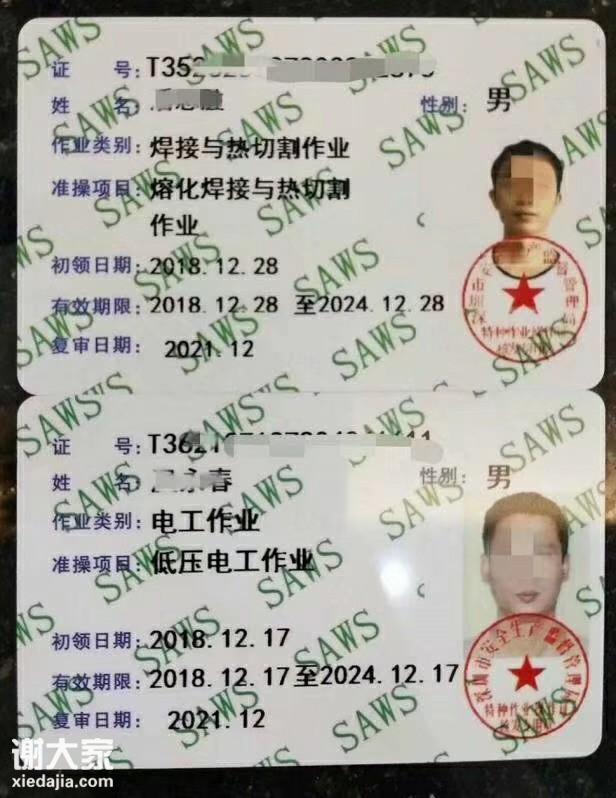 SAWS
证 号:T352
姓 名:
性别: 男
作业类别: 焊接与热切割作业
准操项目: 熔化焊接与热切割
作业
初领日期: 2018.12.28
有效期限: 2018.12.28 至2024.12.28
复审日期: 2021.12
证 号:T362
姓 名: 永春
性别: 男
作业类别: 电工作业
准操项目: 低压电工作业
初领日期: 2018.12.17
有效期限: 2018.12.17 至2024.12.17
复审日期: 2021.12
深圳市安全生产监督管理局
谢大家
xiedajia.com